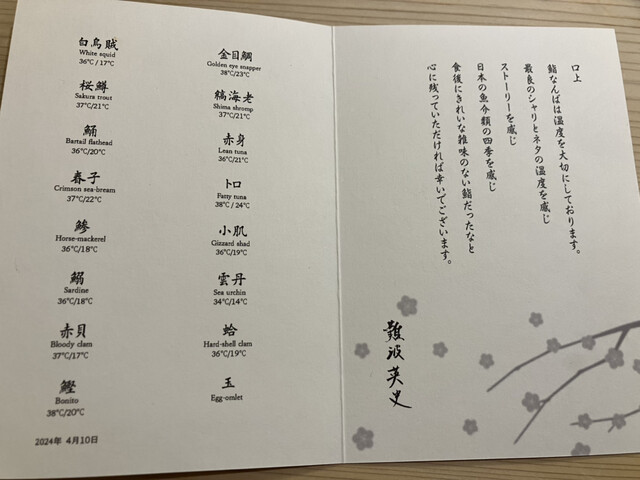 白烏賊
White squid
36℃ / 17℃
桜鱒
Sakura trout
37℃/21℃
鯒
Bartail flathead
36℃/20℃
春子
Crimson sea-bream
37℃/22℃
鯵
Horse-mackerel
36℃/18℃
鰯
Sardine
36℃/18℃
赤貝
Bloody clam
37℃/17℃
鰹
Bonito
38℃/20℃
2024年 4月10日
金目鯛
Golden eye snapper
38℃/23℃
縞海老
Shima shromp
37℃/21℃
赤身
Lean tuna
36℃/21℃
トロ
Fatty tuna
38℃ / 24℃
小肌
Gizzard shad
36℃/19℃
雲丹
Sea urchin
34℃/14℃
蛤
Hard-shell clam
36℃/19℃
玉
Egg-omlet
口上
鮨なんばは温度を大切にしております。
最良のシャリとネタの温度を感じ
ストーリーを感じ
日本の魚介類の四季を感じ
食後にきれいな雑味のない鮨だったなと
心に残っていただければ幸いでございます。
難波英史